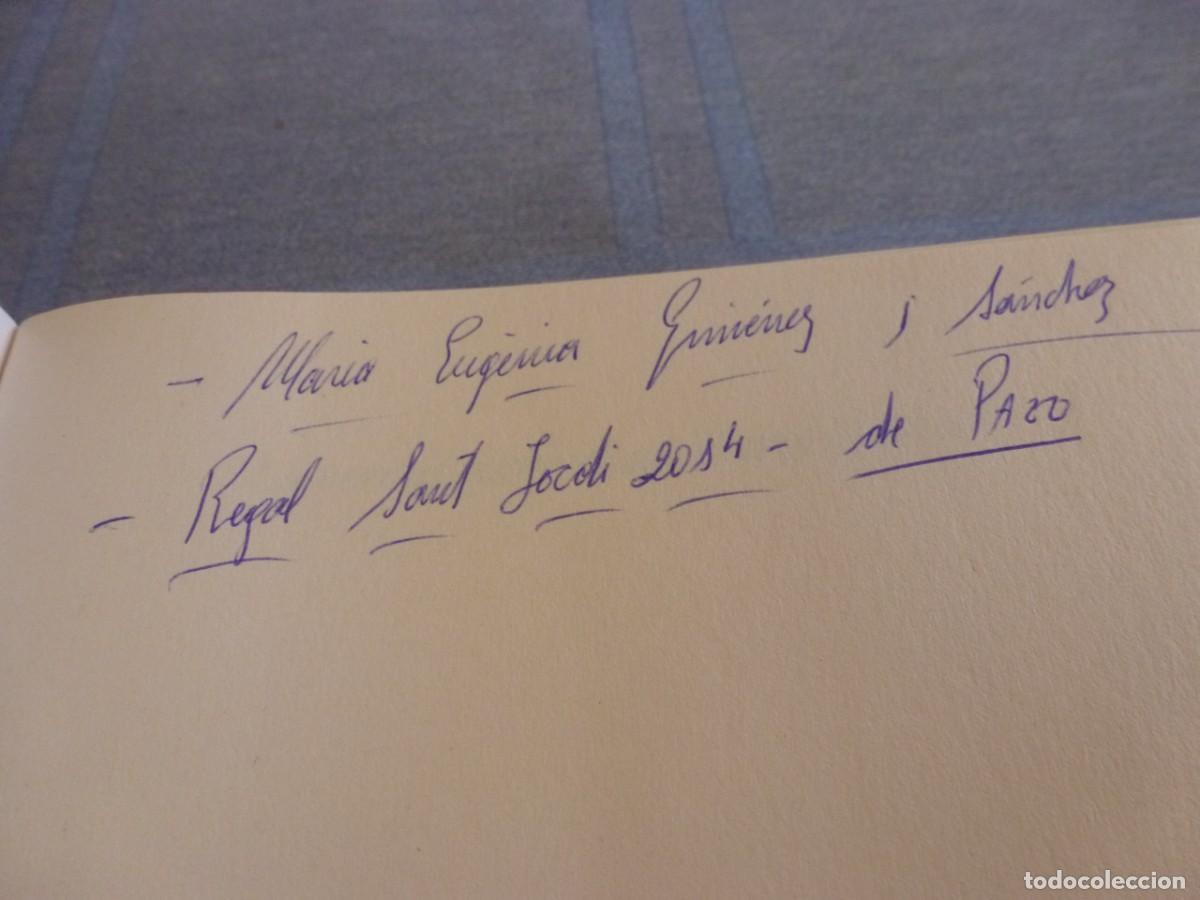 - Maria Eugènia Giménez i Sánchez
- Regal Sant Jordi 2014 - de PAZO
todocoleccion